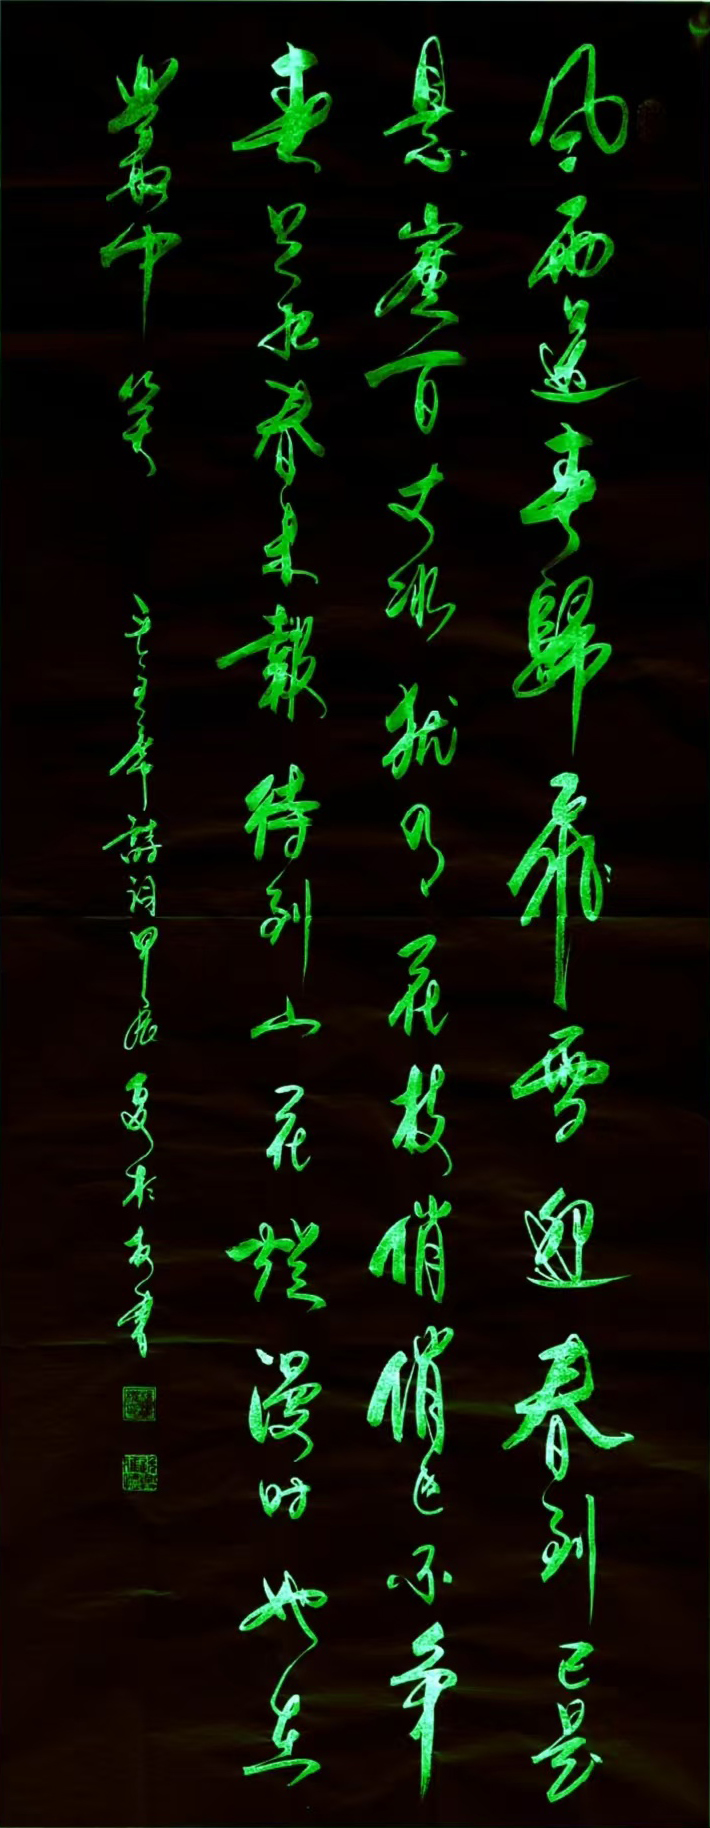 風雨送春歸飛雪迎春到已是
悬崖百丈冰犹有花枝俏俏也不争
春只把春来報待到山花爛漫时她在
叢中笑
毛主席詩詞甲辰夏於書